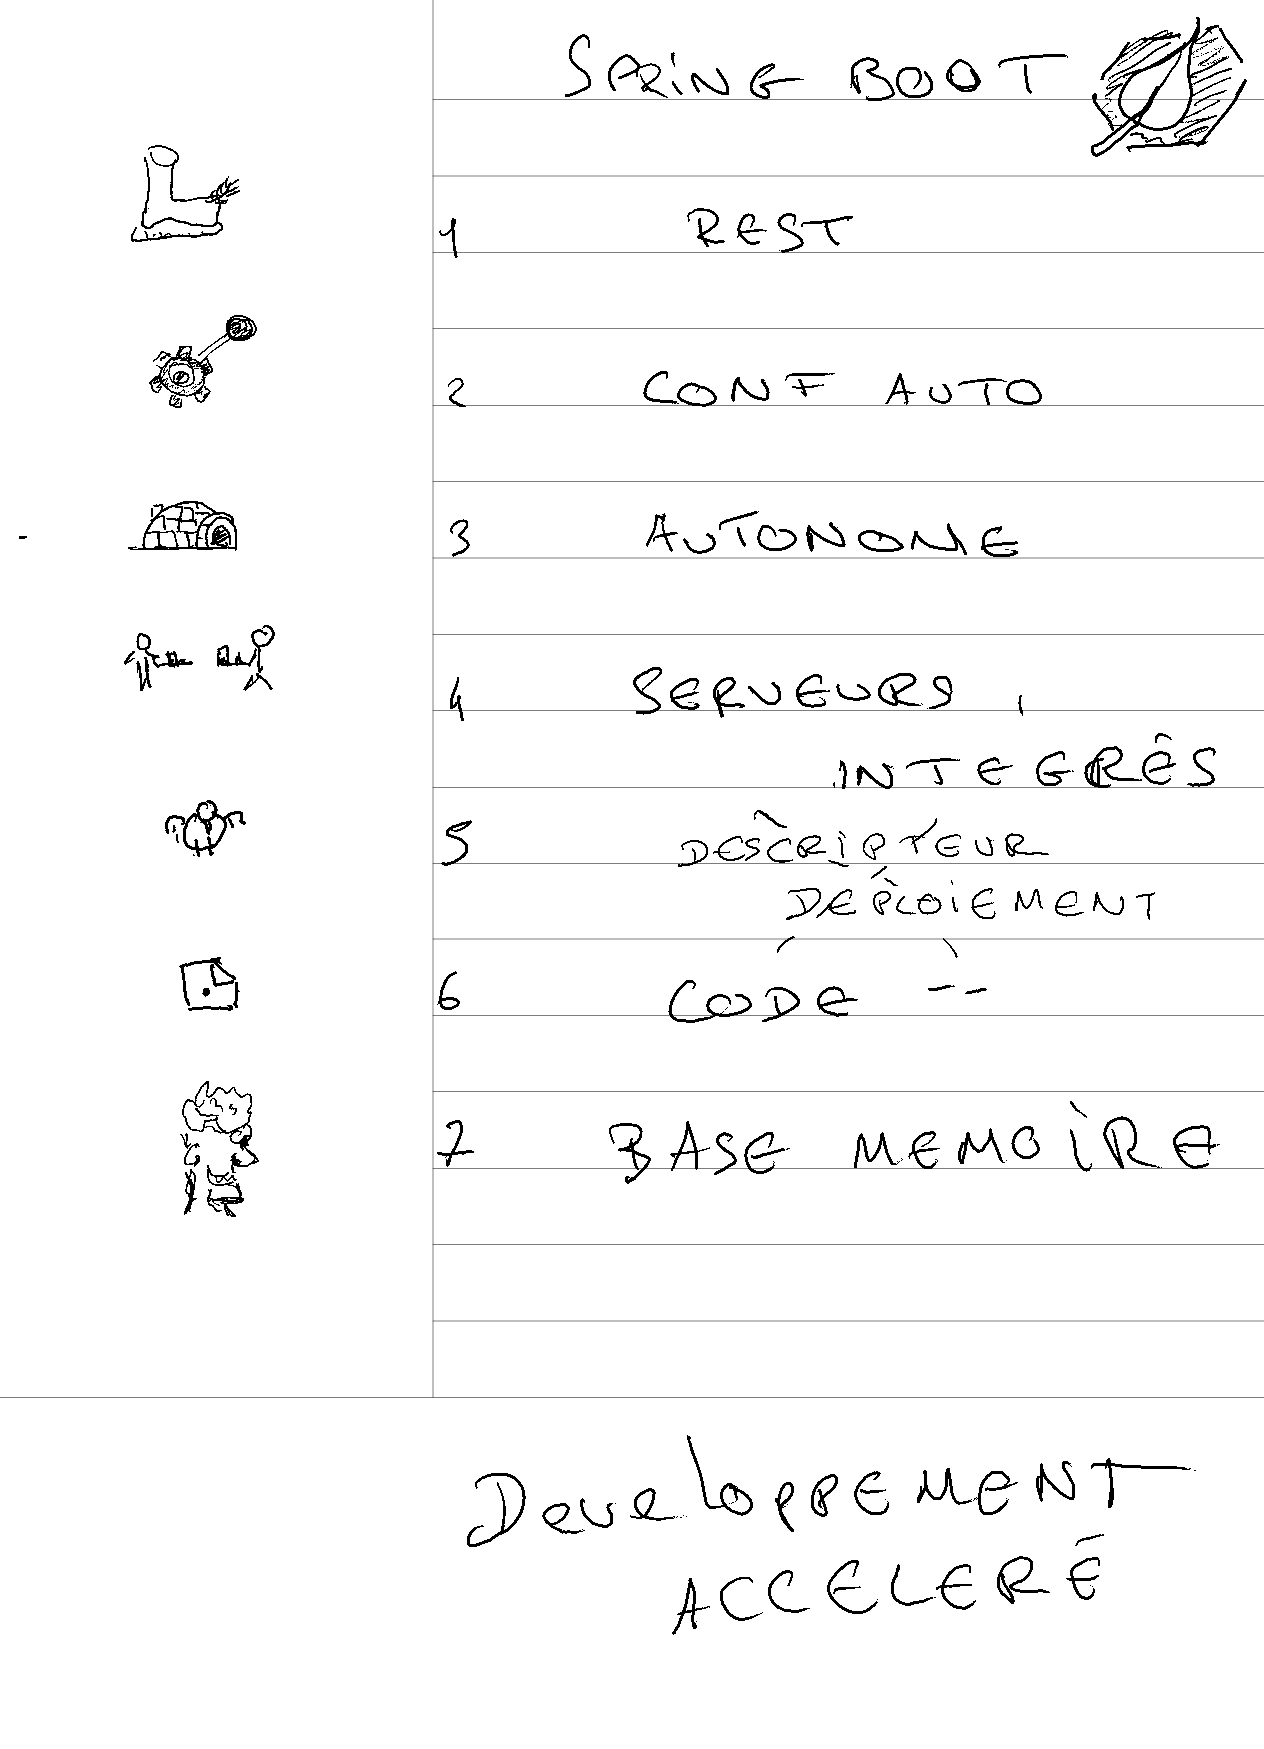 SPRING BOOT
1 REST
2 CONF AUTO
3 AUTONOME
4 SERVEURS
INTEGRÉS
5 DESCRIPTEUR
DEPLOIEMENT
6 CODE --
7 BASE MEMOIRE
DeveloPPEMENT
ACCELERÉ